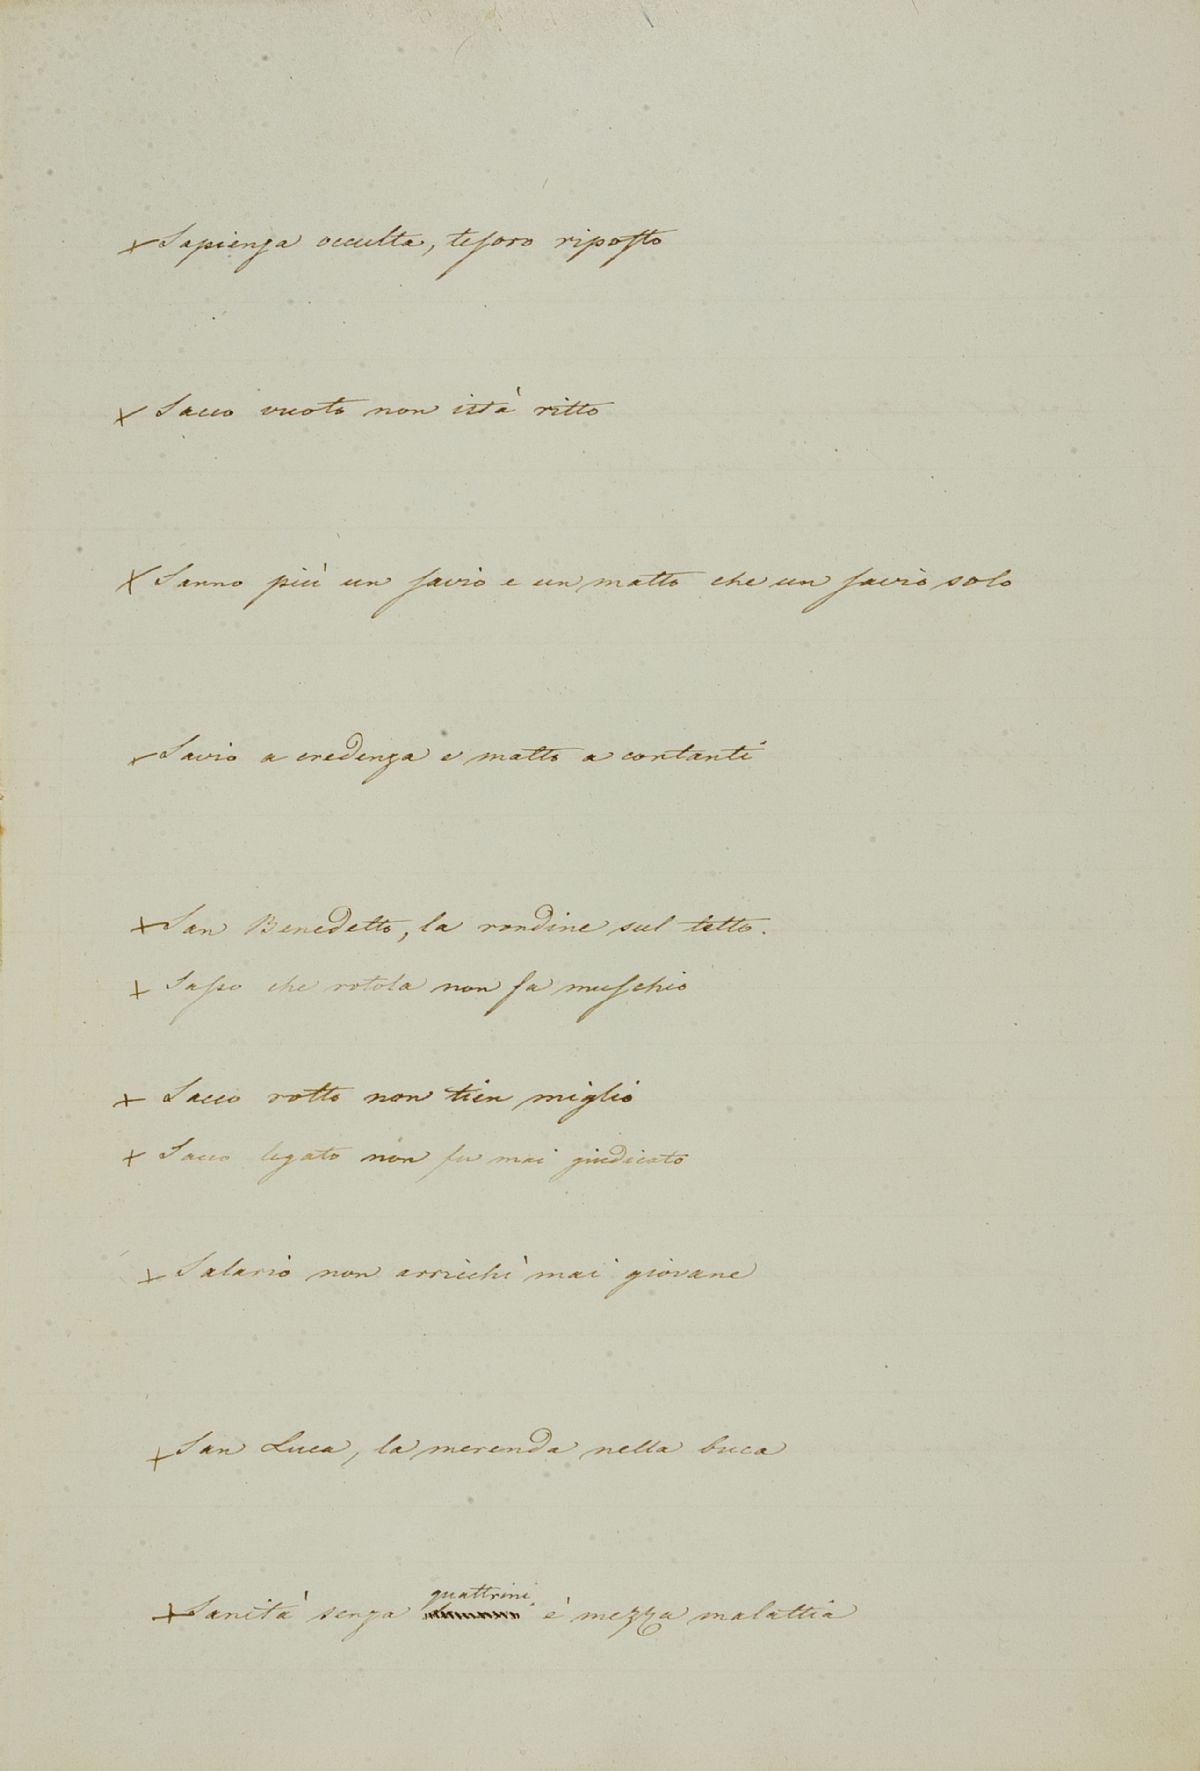 + Sapienza occulta, tesoro riposto
+ Sacco vuoto non istà ritto
+ Sanno più un savio e un matto che un savio solo
+ Savio a credenza e matto a contanti
+ San Benedetto, la rondine sul tetto.
+ Sasso che rotola non fa muschio
+ Sacco rotto non tien miglio
+ Sacco legato non fu mai giudicato
+ Salario non arricchì mai giovane
+ San Luca, la merenda nella buca
quattrini
+ Sanità senza è mezza malattia